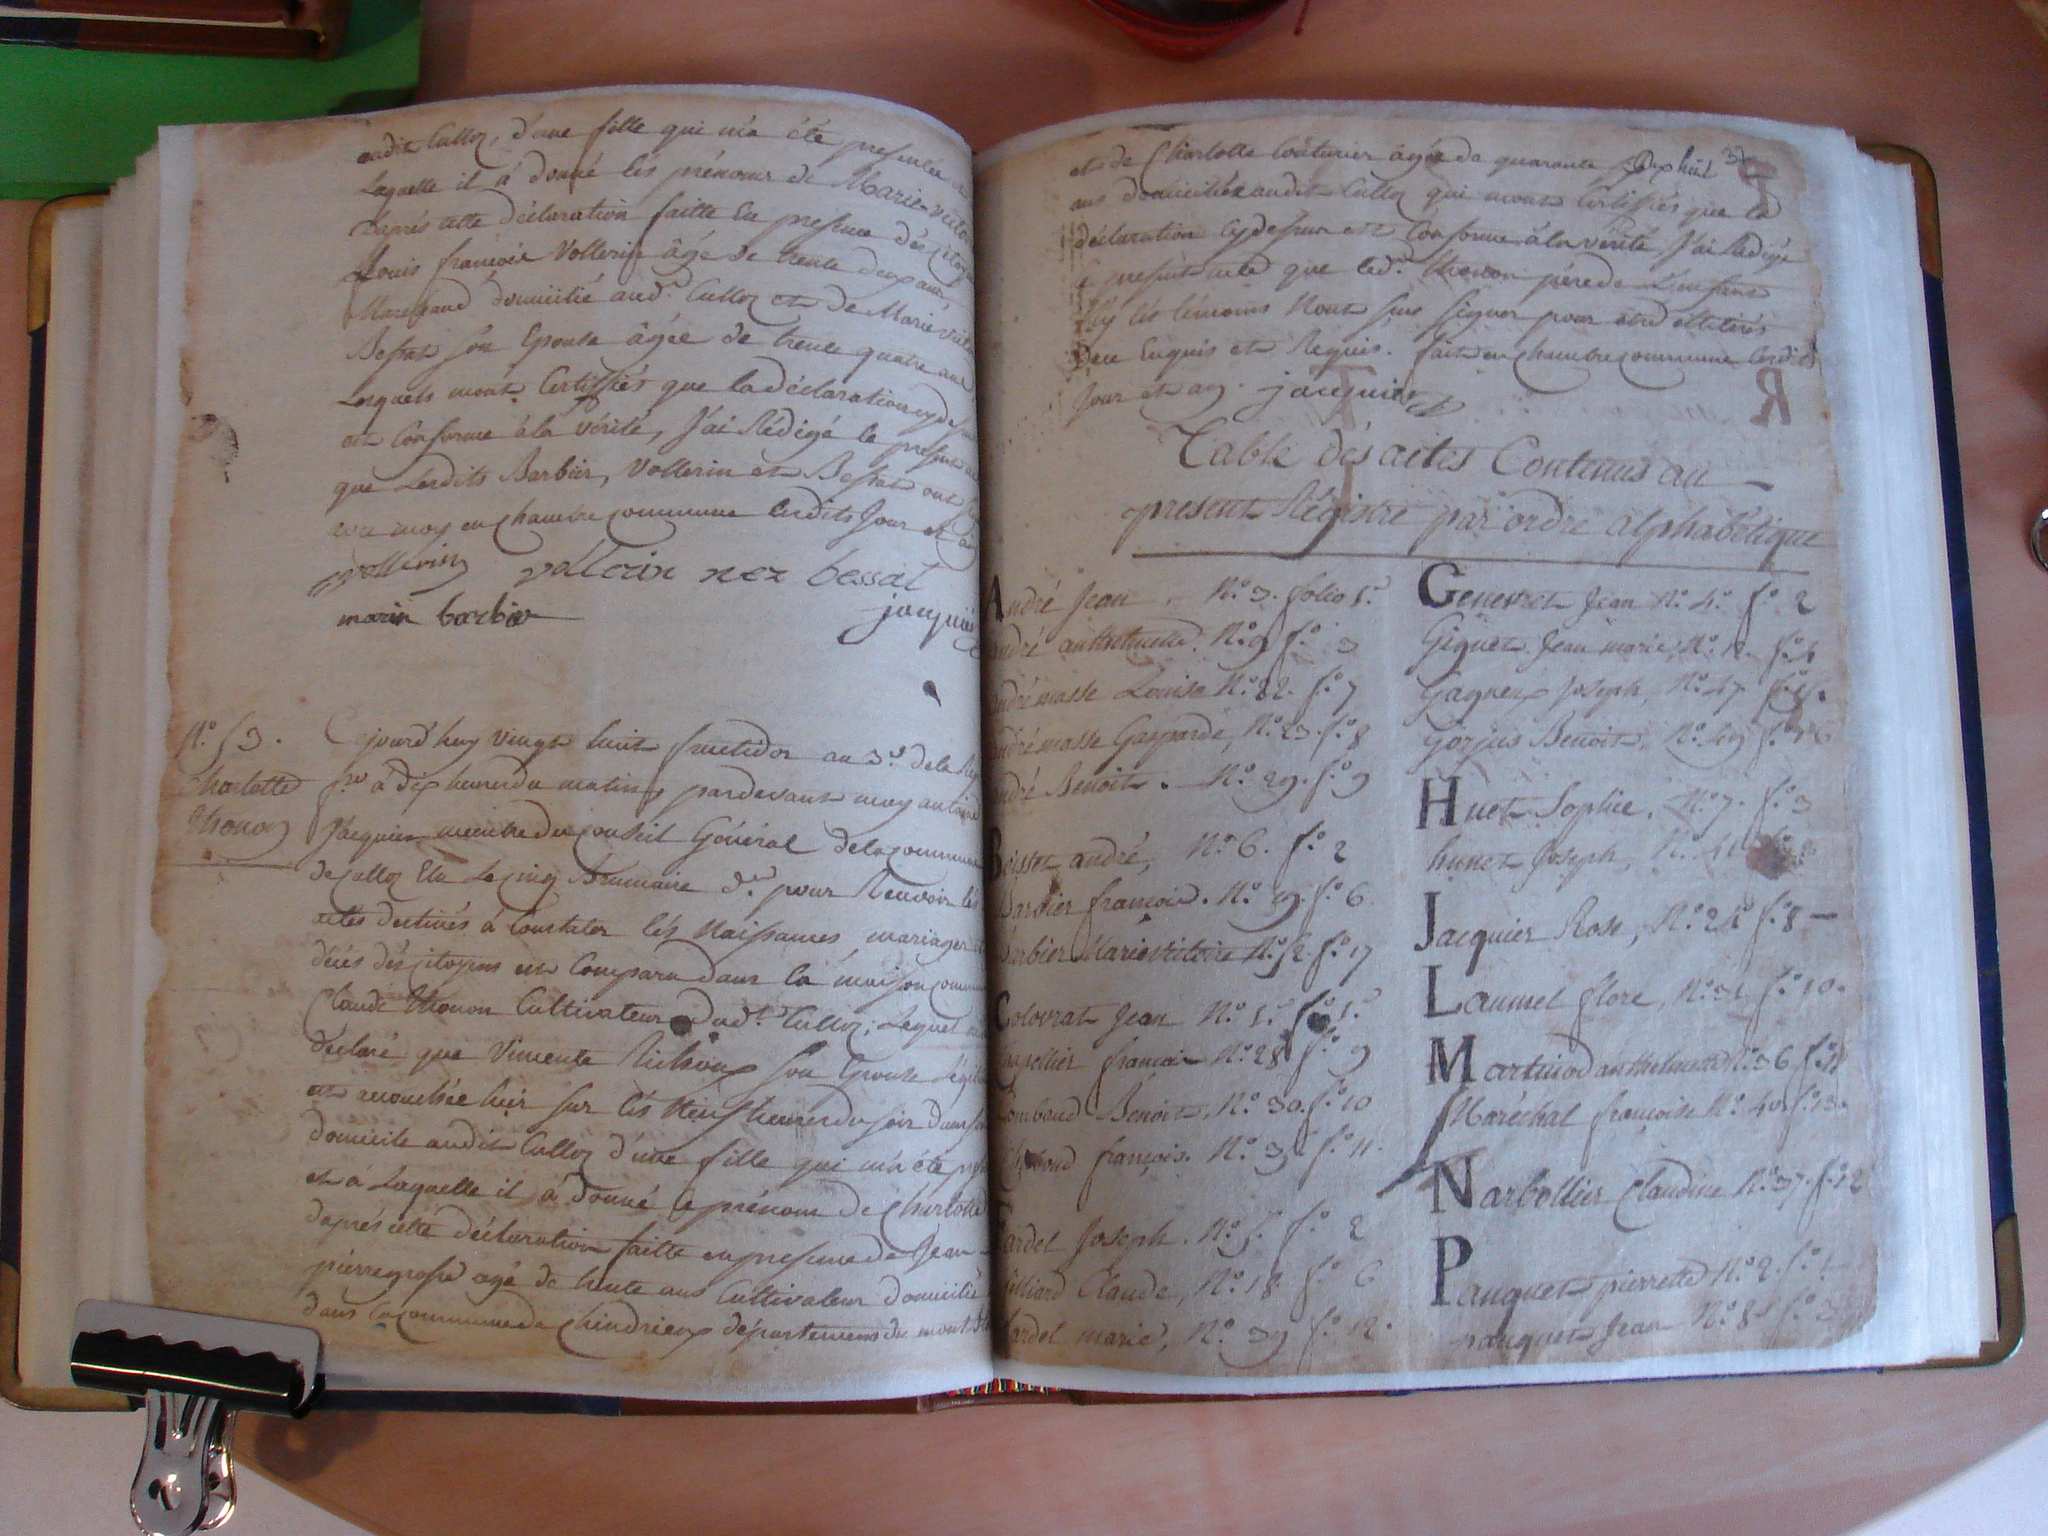 audit Culloz, d'une fille qui m'a été presentée
Laquelle il a donné lés prénoms de Marie
d'aprés cette déclaration faitte En presence dés
Louis françois Vollerin âgé de trente deux ans
Marchand domicilié aud.t Culloz et de Marie
Bessat son Epouse âgée de trente quatre ans
Lesquels mont Certiffiés que la déclaration
est Conforme á la vérité, J'ai Rédigé le present
que Lesdits Barbier, Vollerin et Bessat ont
avec moy en chambre commune Lesdits Jour et
vollerin vollerin nez bessat
marin barbier jacquier
N.o 53. Cejourd'huy vingt huit fructidor an 3.e de la
Charlotte à Dix heures du matin, pardevant moy antoine
Thonon Jacquier membre du conseil Général de la commune
de Culloz Elu Le cinq Brumaire d.er pour Recevoir lés
actes destinés à Constater lés Naissances, mariages
décés dés citoyens est Comparu dans la maison commune
Claude Thonon Cultivateur dud.t Culloz; Lequel
declaré que son Epouse
est accouchée hier sur lés Neuf heures du soir dans son
domicile audit Culloz d'une fille qui m'a été
et à Laquelle il a donné le prénom de Charlotte
d'aprés cette déclaration faitte en presence de Jean
pierre âgé de trente ans Cultivateur domicilié
dans la commune de Chindrieux département du mont
et de Charlotte Coûturier âgée de quarante Dix huit 37
ans domiciliés audit Culloz qui mont Certiffiés que la
déclaration Cydessus est Conforme á la vérité, J'ai Rédigé
le present acte que led.t Thonon père de L'enfant
Ny lés témoins N'ont sçus signer pour
De Enquis et Requis. fait en chambre commune Lesdits
Jour et an jacquier
Table dés actes Contenus au
present Régistre par ordre alphabétique
André Jean. N.o 3. folio 1.r
andré anthelmette. N.o 9 f.o 3
andrémasse Louise N.o 22. f.o 7
andrémasse Gasparde, N.o 23. f.o 8
andré Benoit. N.o 29. f.o 9
andré, N.o 6. f.o 2
Barbier françois. N.o 19. f.o 6
Barbier Marie victoire N.o 52. f.o 17
Colovrat Jean N.o 1.r f.o 1.r
Chapellier françois N.o 28 f.o 9
Combaud Benoit. N.o 30. f.o 10
françois. N.o 3 f.o 11.
Joseph. N.o 5. f.o 2
Claude, N.o 18 f.o 6
marie, N.o 39 f.o 12.
Genevret Jean N.o 4. f.o 2
Giguet Jean marie, N.o 12. f.o
Joseph, N.o 47.
Gorjus Benoit, N.o 49 f.o 16
Huet Sophie. N.o 7. f.o 3
hunet Joseph, N.o 41
Jacquier Rose, N.o 24 f.o 8
Laumel flore, N.o 31 f.o 10.
Martinod anthelmette N.o 36 f.o
Maréchal françoise N.o 40. f.o 13.
Narbollier Claudine N.o 37. f.o 12
Pauquet pierrette N.o 2. f.o 1
pauquet Jean N.o 8 f.o